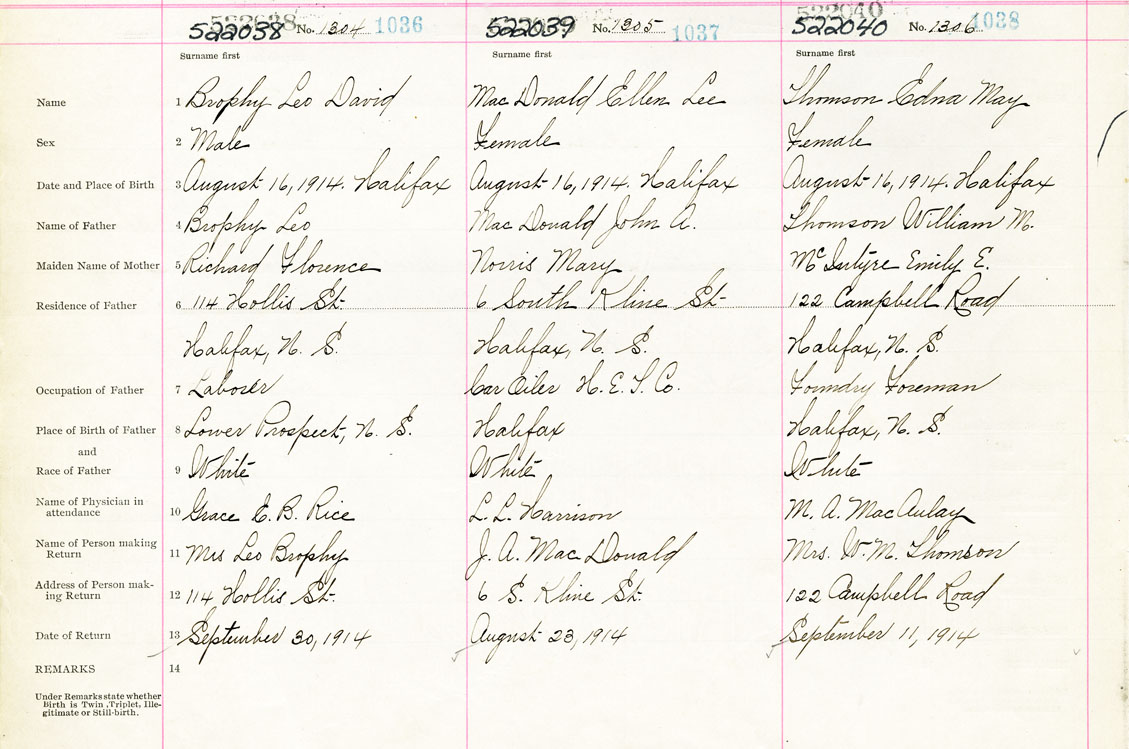 522038 522039 522040
522038 No. 1304 1036 522039 No. 1305 1037 522040 No. 1306 1038
Surname first Surname first Surname first
Name 1 Brophy Leo David Mac Donald Ellen Lee Thomson Edna May
Sex 2 Male Female Female
Date and Place of Birth 3 August 16, 1914. Halifax August 16, 1914. Halifax August 16, 1914. Halifax
Name of Father 4 Brophy Leo Mac Donald John A. Thomson William M.
Maiden Name of Mother 5 Richard Florence Norris Mary McIntyre Emily E.
Residence of Father 6 114 Hollis St. 6 South Kline St. 122 Campbell Road
Halifax, N. S. Halifax, N. S. Halifax, N. S.
Occupation of Father 7 Laborer Car Oiler H. E. T. Co. Foundry Foreman
Place of Birth of Father 8 Lower Prospect, N. S. Halifax Halifax, N. S.
and
Race of Father 9 White White White
Name of Physician in
attendance 10 Grace E. B. Rice L. L. Harrison M. A. MacAulay
Name of Person making
Return 11 Mrs Leo Brophy J. A. Mac Donald Mrs. W. M. Thomson
Address of Person mak-
ing Return 12 114 Hollis St. 6 S. Kline St. 122 Campbell Road
Date of Return 13 September 30, 1914 August 23, 1914 September 11, 1914
REMARKS 14
Under Remarks state whether
Birth is Twin, Triplet, Ille-
gitimate or Still-birth.